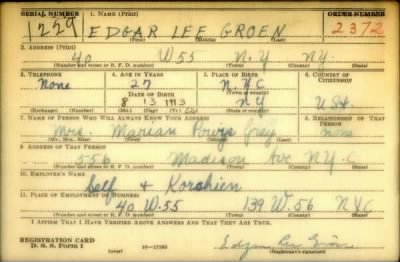 SERIAL NUMBER 1. NAME (Print) ORDER NUMBER
1229 EDGAR LEE GROEN 2372
(First) (Middle) (Last)
2. ADDRESS (Print)
40 W. 55 N.Y N.Y.
(Number and street or R. F. D. number) (Town) (County) (State)
3. TELEPHONE 4. AGE IN YEARS 5. PLACE OF BIRTH 6. COUNTRY OF CITIZENSHIP
None 27 N.Y.C
DATE OF BIRTH (Town or county)
8 13 1913 NY USA
(Exchange) (Number) (Mo.) (Day) (Yr.) (State or country)
7. NAME OF PERSON WHO WILL ALWAYS KNOW YOUR ADDRESS 8. RELATIONSHIP OF THAT PERSON
Mrs. Marian Powys Grey none
(Mr., Mrs., Miss) (First) (Middle) (Last)
9. ADDRESS OF THAT PERSON
556 Madison Ave N.Y.C
(Number and street or R. F. D. number) (Town) (County) (State)
10. EMPLOYER'S NAME
Self +
11. PLACE OF EMPLOYMENT OR BUSINESS
40 W. 55 139 W. 56 NYC
(Number and street or R. F. D. number) (Town) (County) (State)
I AFFIRM THAT I HAVE VERIFIED ABOVE ANSWERS AND THAT THEY ARE TRUE.
REGISTRATION CARD
D. S. S. FORM 1 (over) 16-17105 Edgar Lee Groen
(Registrant's signature)